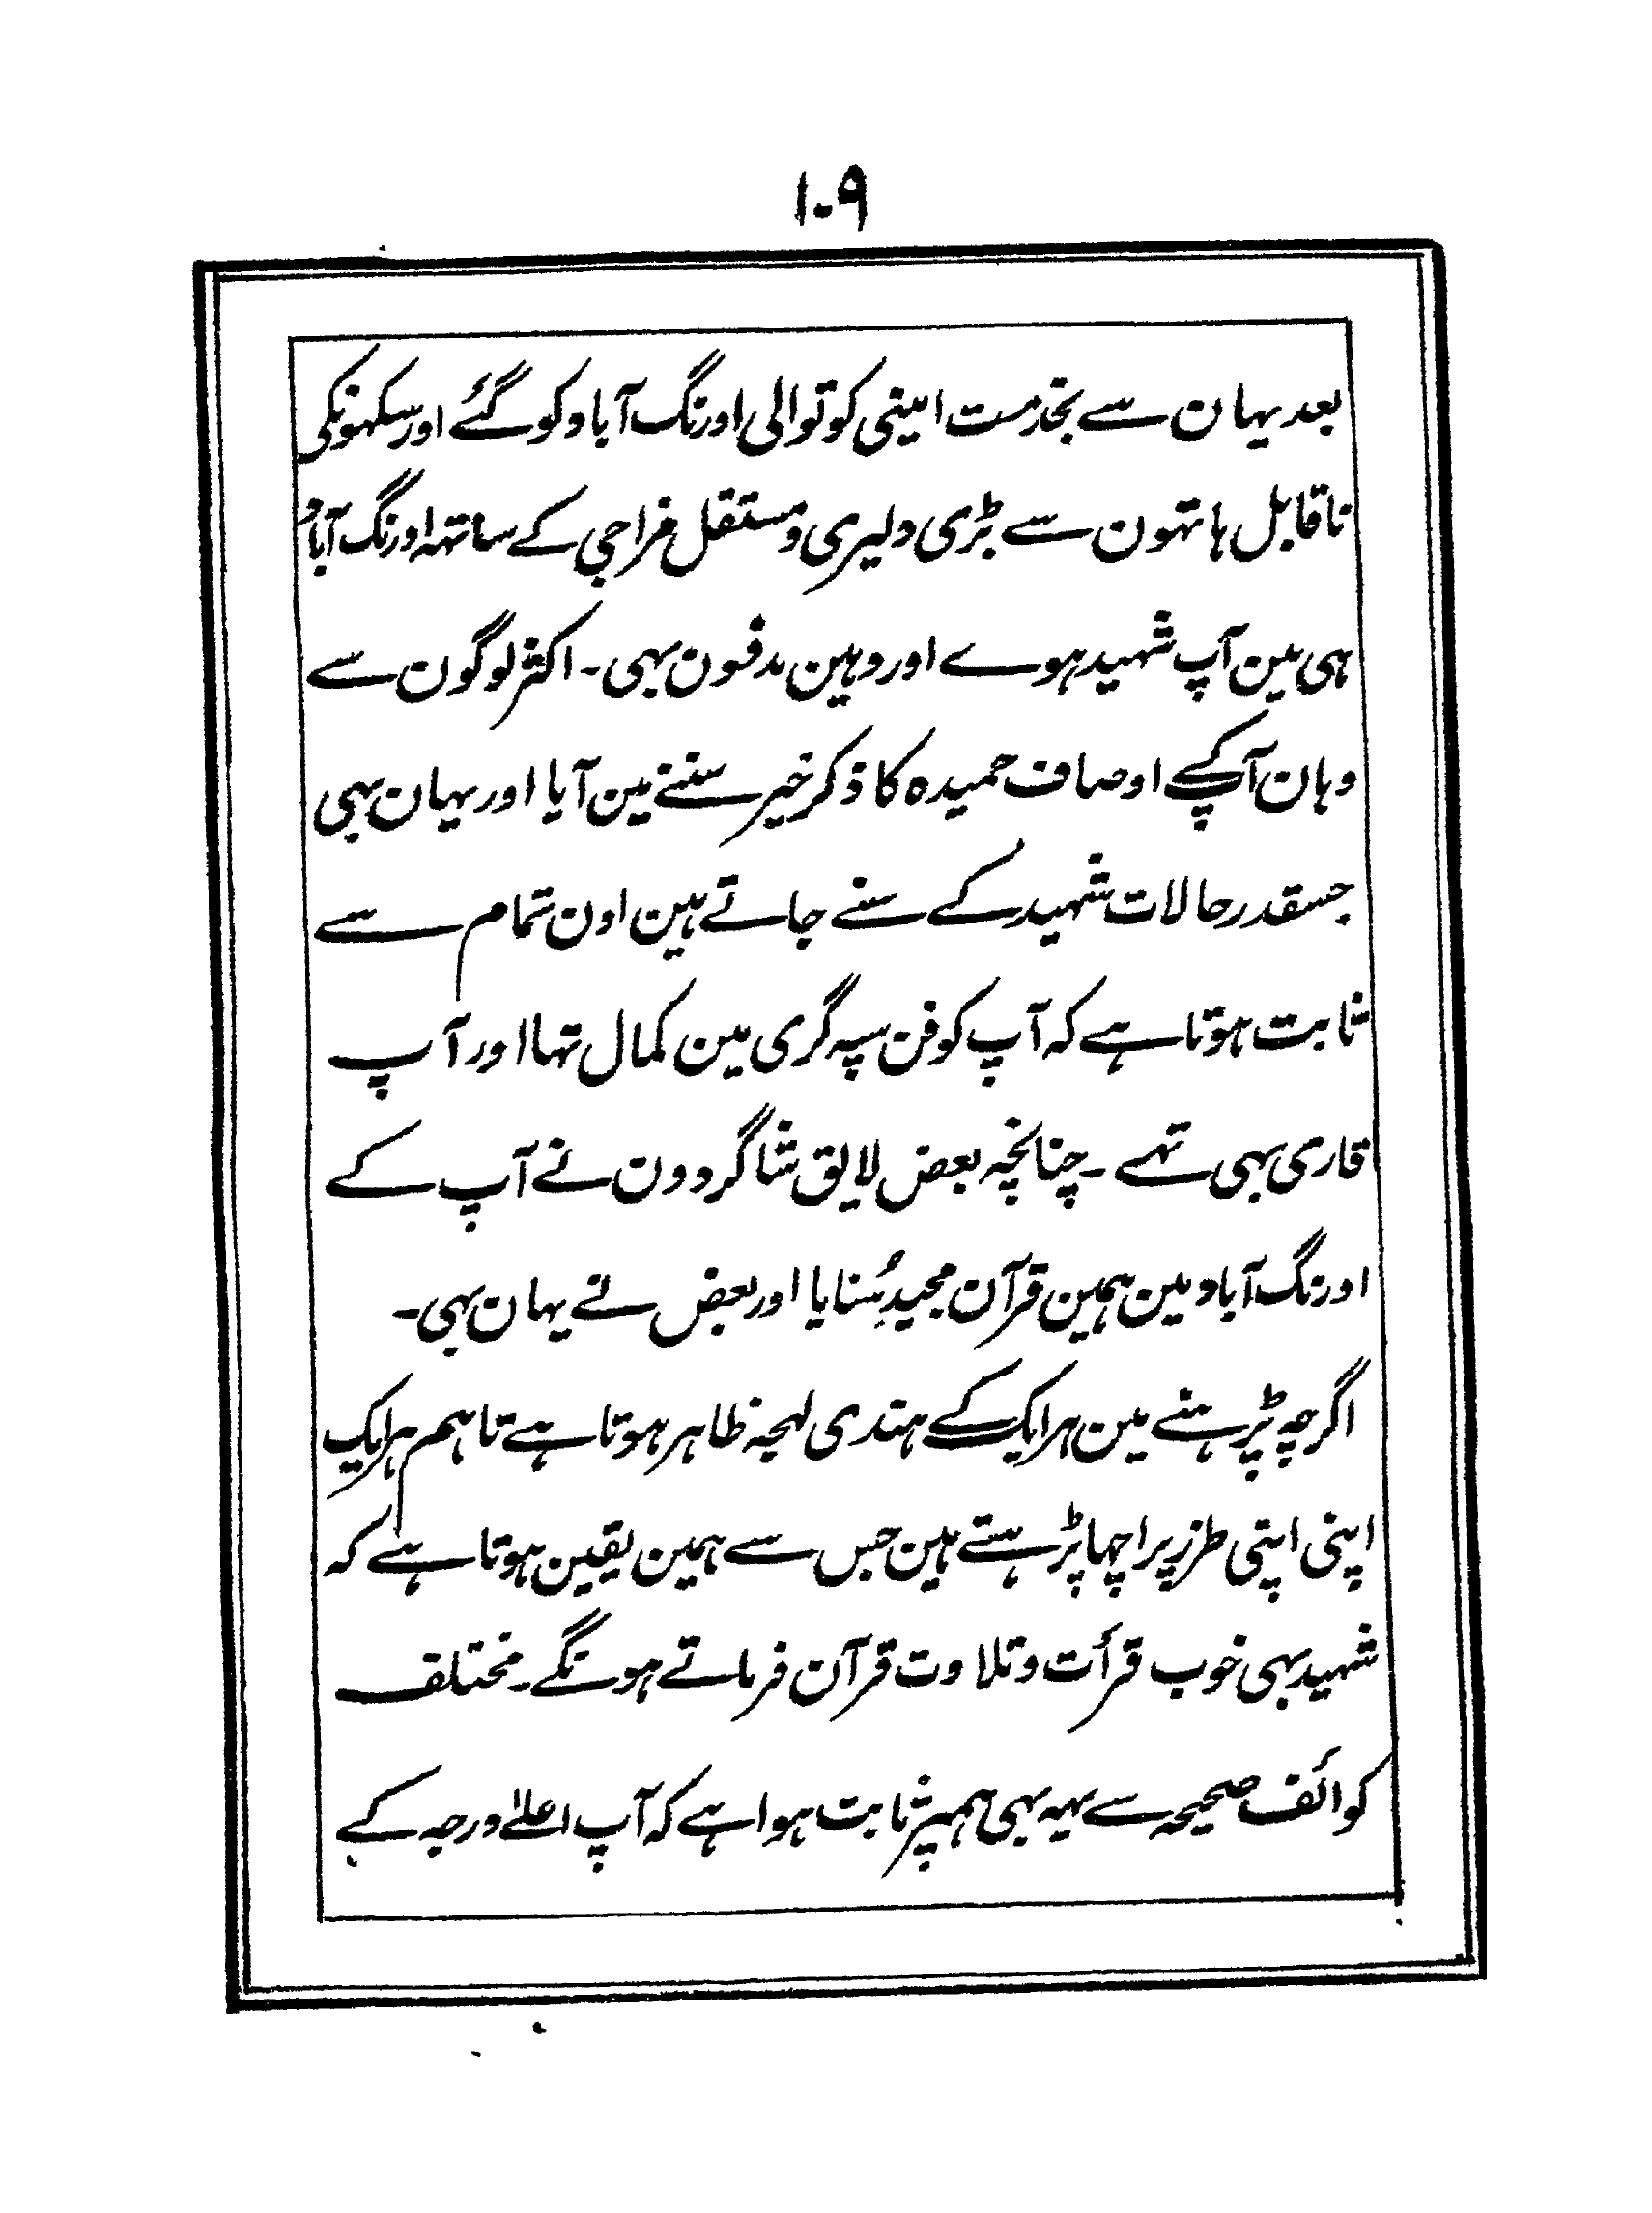 ۱۰۹
بعد یہان سے بخدمت امینی کوتوالی اورنگ آباد کو گئے اور سکہونکی
ناقابل ہاتہون سے بڑی دلیری و مستقل مزاجی کے ساتہہ اورنگ آباد
ہی مین آپ شہید ہوے اور وہین مدفون بہی ۔ اکثر لوگون سے
وہان آپکے اوصاف حمیدہ کا ذکر خیر سننے مین آیا اور یہان بہی
جسقدر حالات شہید کے سنے جاتے ہین اون تمام سے
ثابت ہوتا ہے کہ آپ کو فن سپہ گری مین کمال تہا اور آپ
قاری بہی تہے ۔ چنانچہ بعض لایق شاگردون نے آپ کے
اورنگ آباد مین ہمین قرآن مجید سُنایا اور بعض نے یہان بہی ۔
اگرچہ پڑہنے مین ہرایک کے ہندی لہجہ ظاہر ہوتا ہے تاہم ہرایک
اپنی اپنی طرز پر اچہا پڑہتے ہین جس سے ہمین یقین ہوتا ہے کہ
شہید بہی خوب قرأت و تلاوت قرآن فرماتے ہونگے ۔ مختلف
کوائف صحیحہ سے یہہ بہی ہمپر ثابت ہوا ہے کہ آپ اعلےٰ درجہ کے